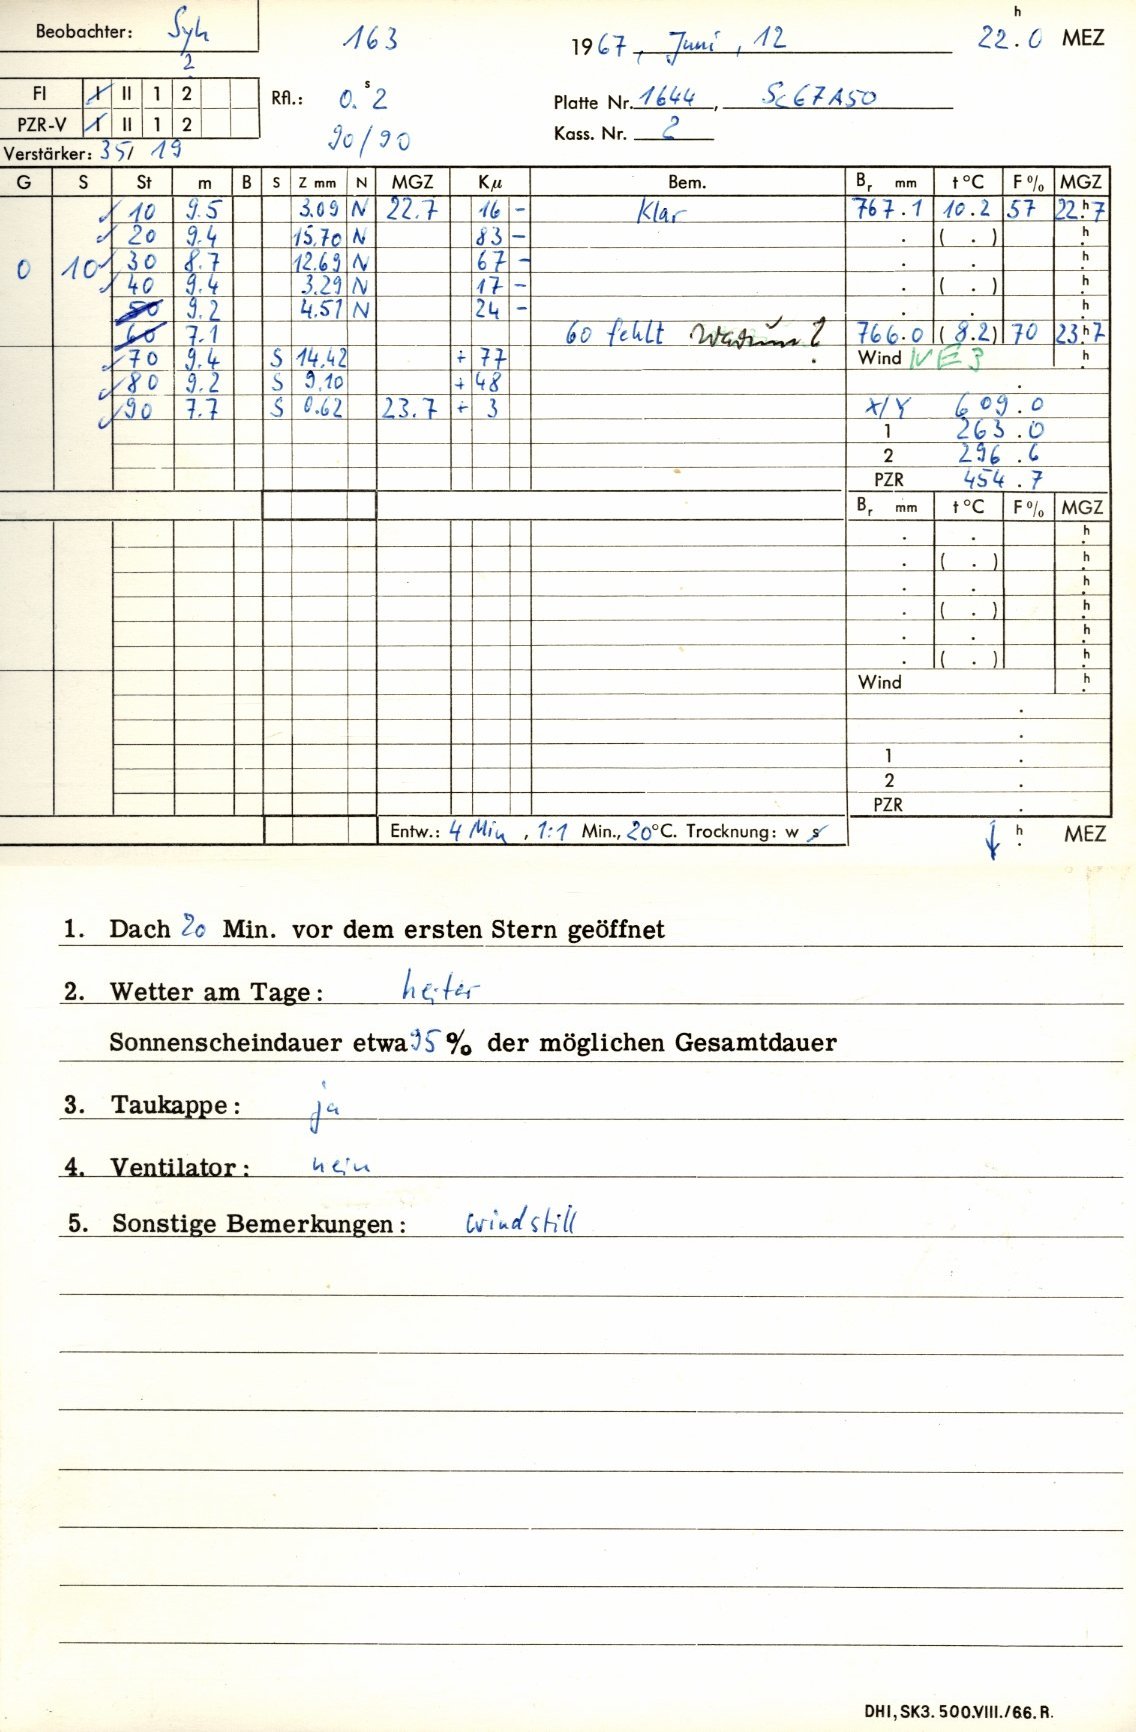 Beobachter: Syh 163 1967, Juni, 12 22.ʰ0 MEZ
2
FI I II 1 2 Rfl.: 0.ˢ2 Platte Nr. 1644, Sc67A50
PZR-V I II 1 2 90/90 Kass. Nr. 2
Verstärker: 35/ 19
G S St m B S Z mm N MGZ Kμ Bem. Bᵣ mm t °C F % MGZ
10 9.5 3.09 N 22.7 16 - Klar 767.1 10.2 57 22.ʰ7
20 9.4 15.70 N 83 - . ( . ) .ʰ
0 10 30 8.7 12.69 N 67 - . . .ʰ
40 9.4 3.29 N 17 - . ( . ) .ʰ
50 9.2 4.51 N 24 - . . .ʰ
60 7.1 60 fehlt Warum? 766.0 ( 8.2) 70 23.ʰ7
70 9.4 S 14.42 + 77 Wind NE 3 .ʰ
80 9.2 S 9.10 + 48 .
90 7.7 S 0.62 23.7 + 3 X/Y 609.0
1 263.0
2 296.6
PZR 454.7
Bᵣ mm t °C F % MGZ
. . .ʰ
. ( . ) .ʰ
. . .ʰ
. ( . ) .ʰ
. . .ʰ
. ( . ) .ʰ
Wind .ʰ
.
.
1 .
2 .
PZR .
Entw.: 4 Min, 1:1 Min., 20°C. Trocknung: w s ↓ .ʰ MEZ
1. Dach 20 Min. vor dem ersten Stern geöffnet
2. Wetter am Tage: heiter
Sonnenscheindauer etwa 95 % der möglichen Gesamtdauer
3. Taukappe: ja
4. Ventilator: nein
5. Sonstige Bemerkungen: windstill
DHI, SK3. 500.VIII./66. R.